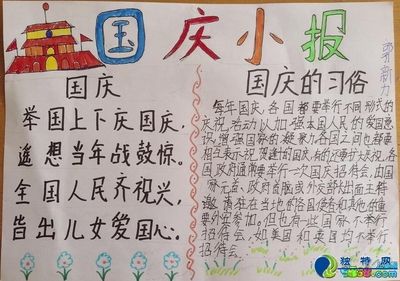 国庆小报
国庆
举国上下庆国庆，
遥想当年战鼓惊。
全国人民齐祝兴，
皆出儿女爱国心。
国庆的习俗
每年国庆，各国都要举行不同形式的
庆祝活动，以加强本国人民的爱国意
识，增强国家的凝聚力。各国之间也都要
相互表示祝贺。逢
国庆，有的还要扩大庆祝
各
国政府通常要举行一次国庆招待会，由国
家元首、政府首脑或外交部长出面主持，
邀请驻在当地的各国使节和其他
重
要外宾参加。但也有一些国家不举行
招待会，如美国和英国均不举行
招待会。
独特网